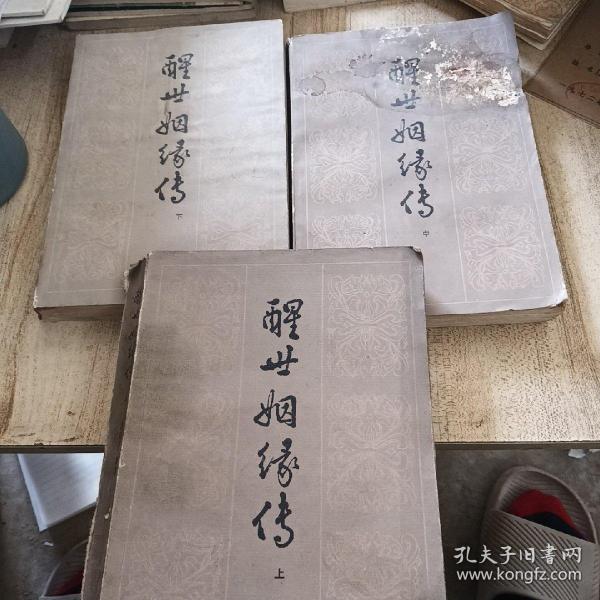 醒世姻缘传
下
醒世姻缘传
中
醒世姻缘传
上
孔夫子旧书网
www.kongfz.com